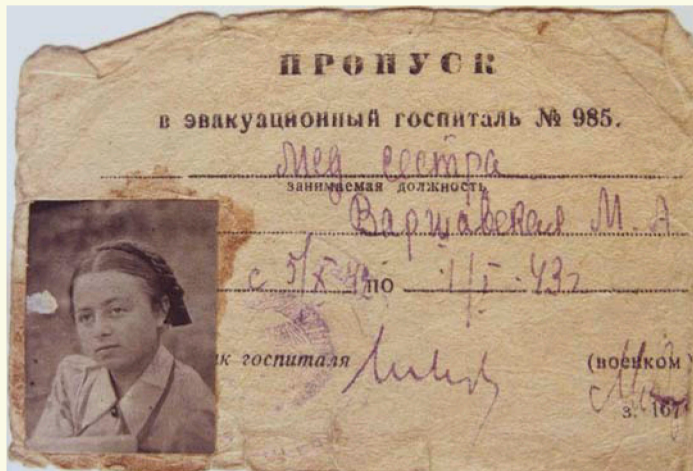 ПРОПУСК
в эвакуационный госпиталь № 985.
Мед сестра
занимаемая должность
Варшавская М. А
с 5/X 42 по 1/I-43г
ик госпиталя (военком)
з. 167